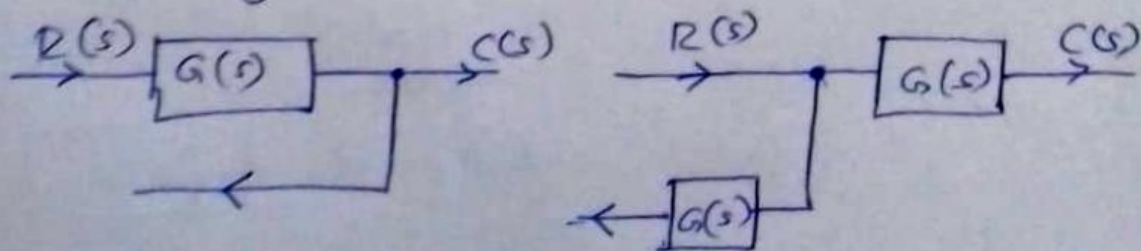 R(s) G(s) C(s) R(s) G(s) C(s)
G(s)